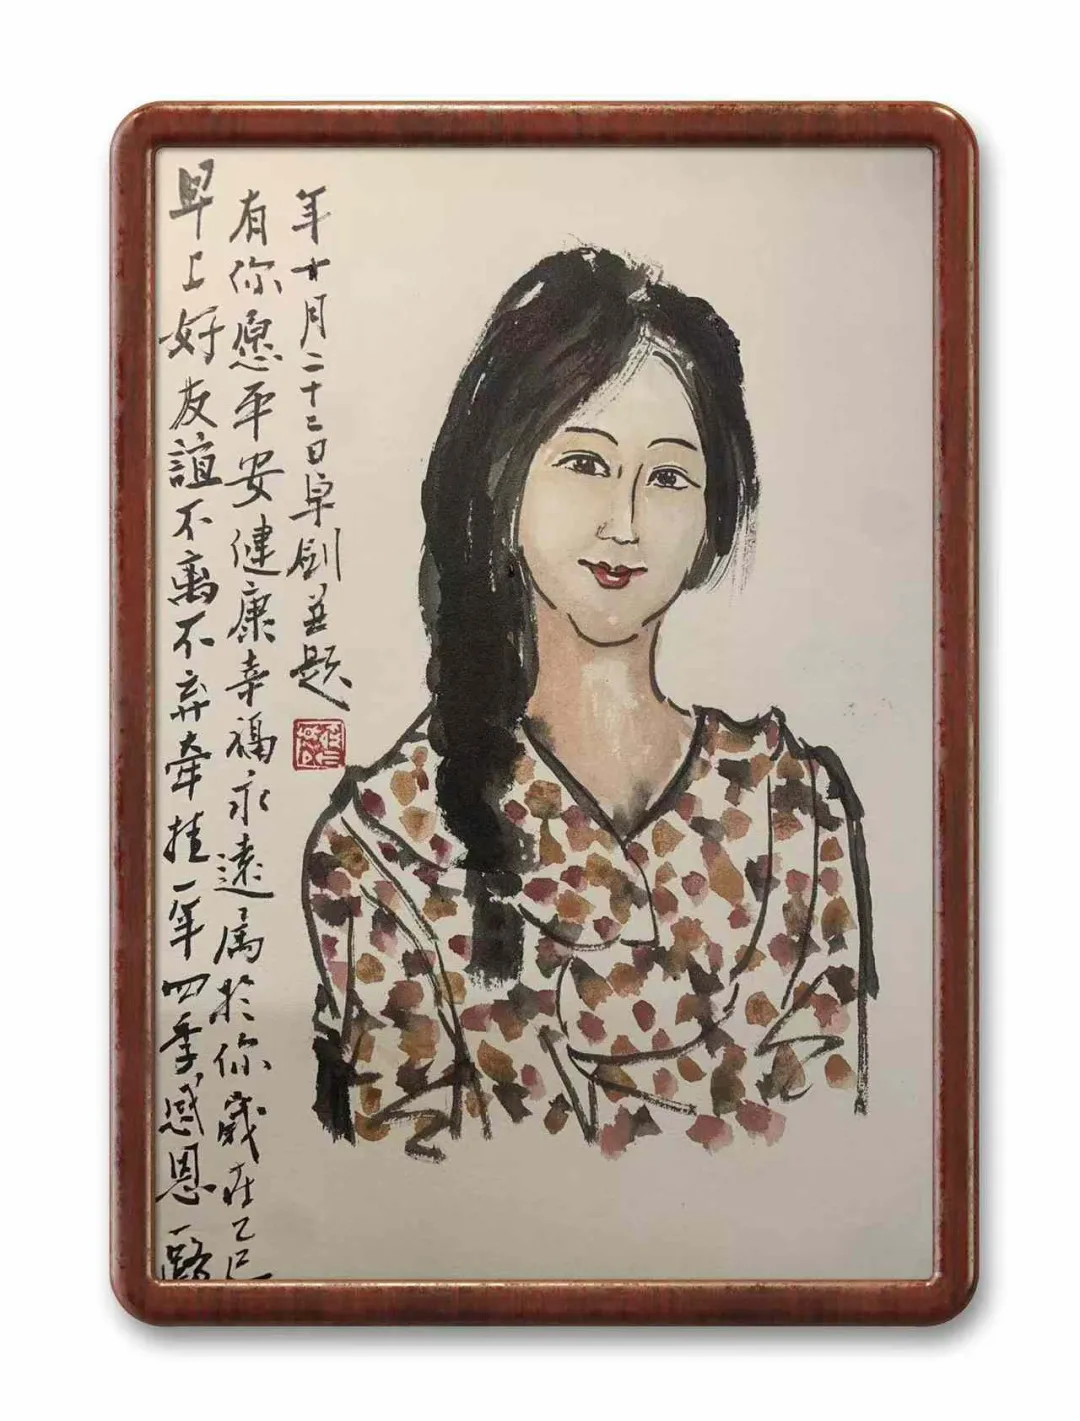 早上好友誼不离不弃牵挂一年四季感恩一路
有你愿平安健康幸福永遠属於你歲在乙巳
年十月二十二日卓剑並题